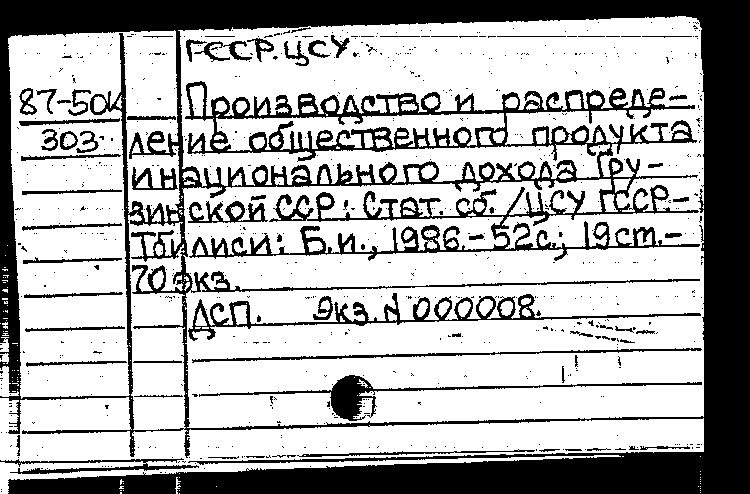 ГССР. ЦСУ.
87-50к Производство и распреде-
303 ление общественного продукта
и национального дохода Гру-
зинской ССР: Стат. сб. /ЦСУ ГССР.-
Тбилиси: Б.и., 1986.- 52с.; 19см.-
70 экз.
ДСП. Экз. N 000008.